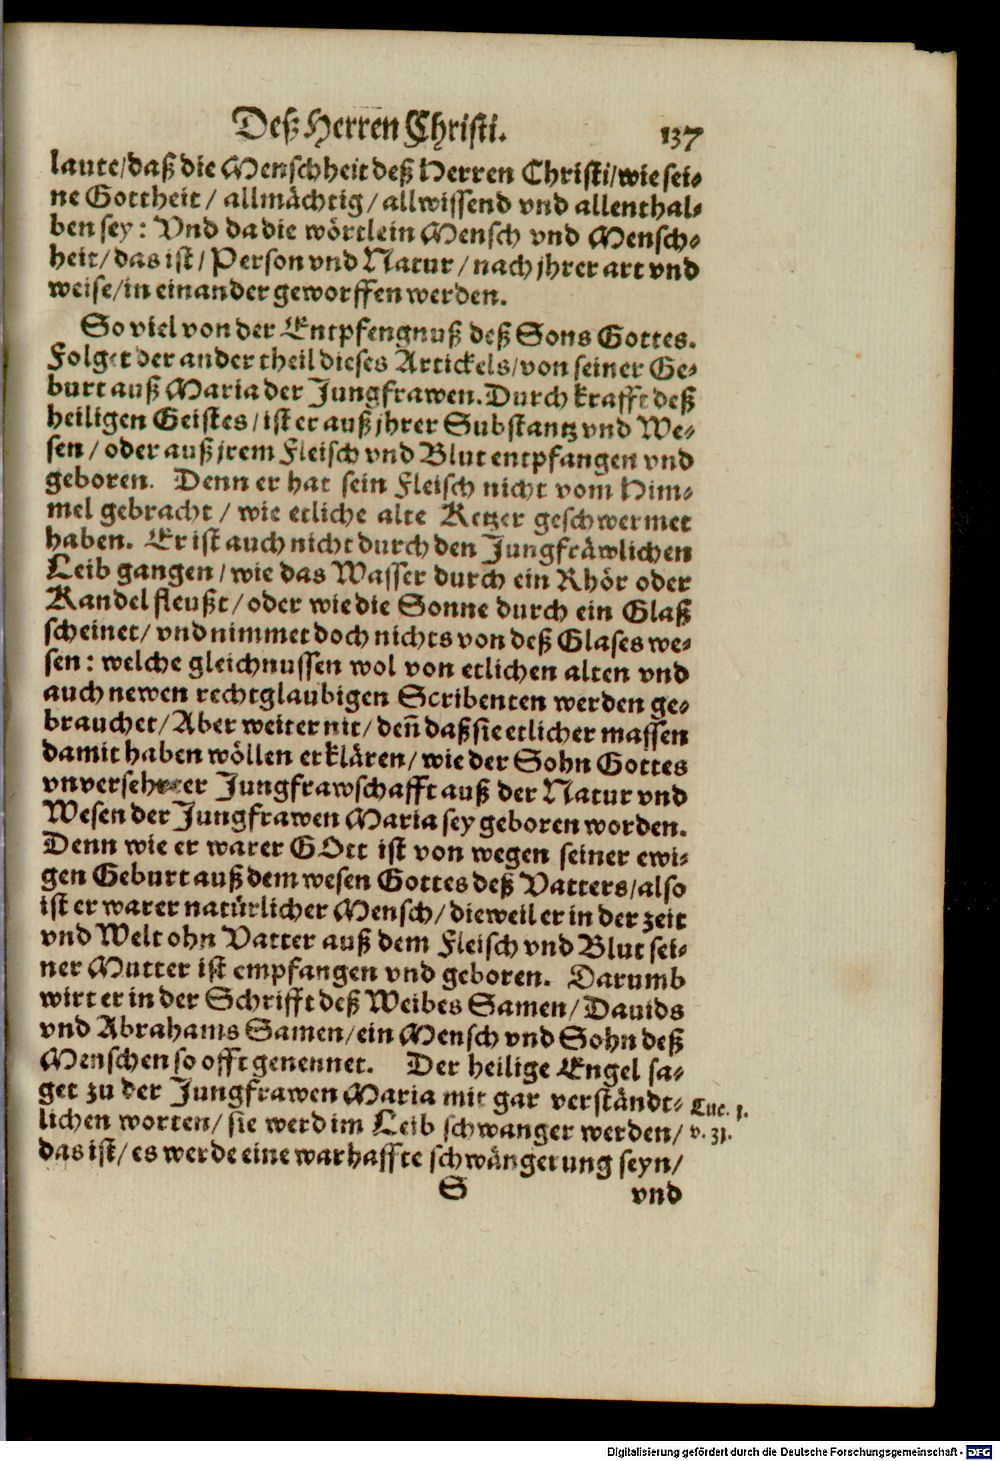 Deß Herren Christi. 137
laute/daß die Menschheit deß Herren Christi/wie sei-
ne Gottheit/ allmächtig/ allwissend vnd allenthal-
ben sey: Vnd da die wörtlein Mensch vnd Mensch-
heit/das ist/ Person vnd Natur/nach jhrer art vnd
weise/in einander geworffen werden.
So viel von der Entpfengnuß deß Sons Gottes.
Folget der ander theil dieses Artickels/von seiner Ge-
burt auß Maria der Jungfrawen. Durch krafft deß
heiligen Geistes/ist er auß jhrer Substantz vnd We-
sen/oder auß jrem Fleisch vnd Blut entpfangen vnd
geboren. Denn er hat sein Fleisch nicht vom Him-
mel gebracht/ wie etliche alte Ketzer geschwermet
haben. Er ist auch nicht durch den Jungfräwlichen
Leib gangen/wie das Wasser durch ein Rhör oder
Kandel fleußt/oder wie die Sonne durch ein Glaß
scheinet/vnd nimmet doch nichts von deß Glases we-
sen: welche gleichnussen wol von etlichen alten vnd
auch newen rechtglaubigen Scribenten werden ge-
brauchet/Aber weiter nit/deñ daß sie etlicher massen
damit haben wöllen erklären/wie der Sohn Gottes
vnversehrter Jungfrawschafft auß der Natur vnd
Wesen der Jungfrawen Maria sey geboren worden.
Denn wie er warer GOtt ist von wegen seiner ewi-
gen Geburt auß dem wesen Gottes deß Vatters/also
ist er warer natürlicher Mensch/dieweil er in der zeit
vnd Welt ohn Vatter auß dem Fleisch vnd Blut sei-
ner Mutter ist empfangen vnd geboren. Darumb
wirt er in der Schrifft deß Weibes Samen/Dauids
vnd Abrahams Samen/ein Mensch vnd Sohn deß
Menschen so offt genennet. Der heilige Engel sa-
get zu der Jungfrawen Maria mit gar verständt-
lichen worten/sie werd im Leib schwanger werden/
das ist/es werde eine warhaffte schwängerung seyn/
Luc. 1.
v. 31.
S vnd
Digitalisierung gefördert durch die Deutsche Forschungsgemeinschaft - DFG